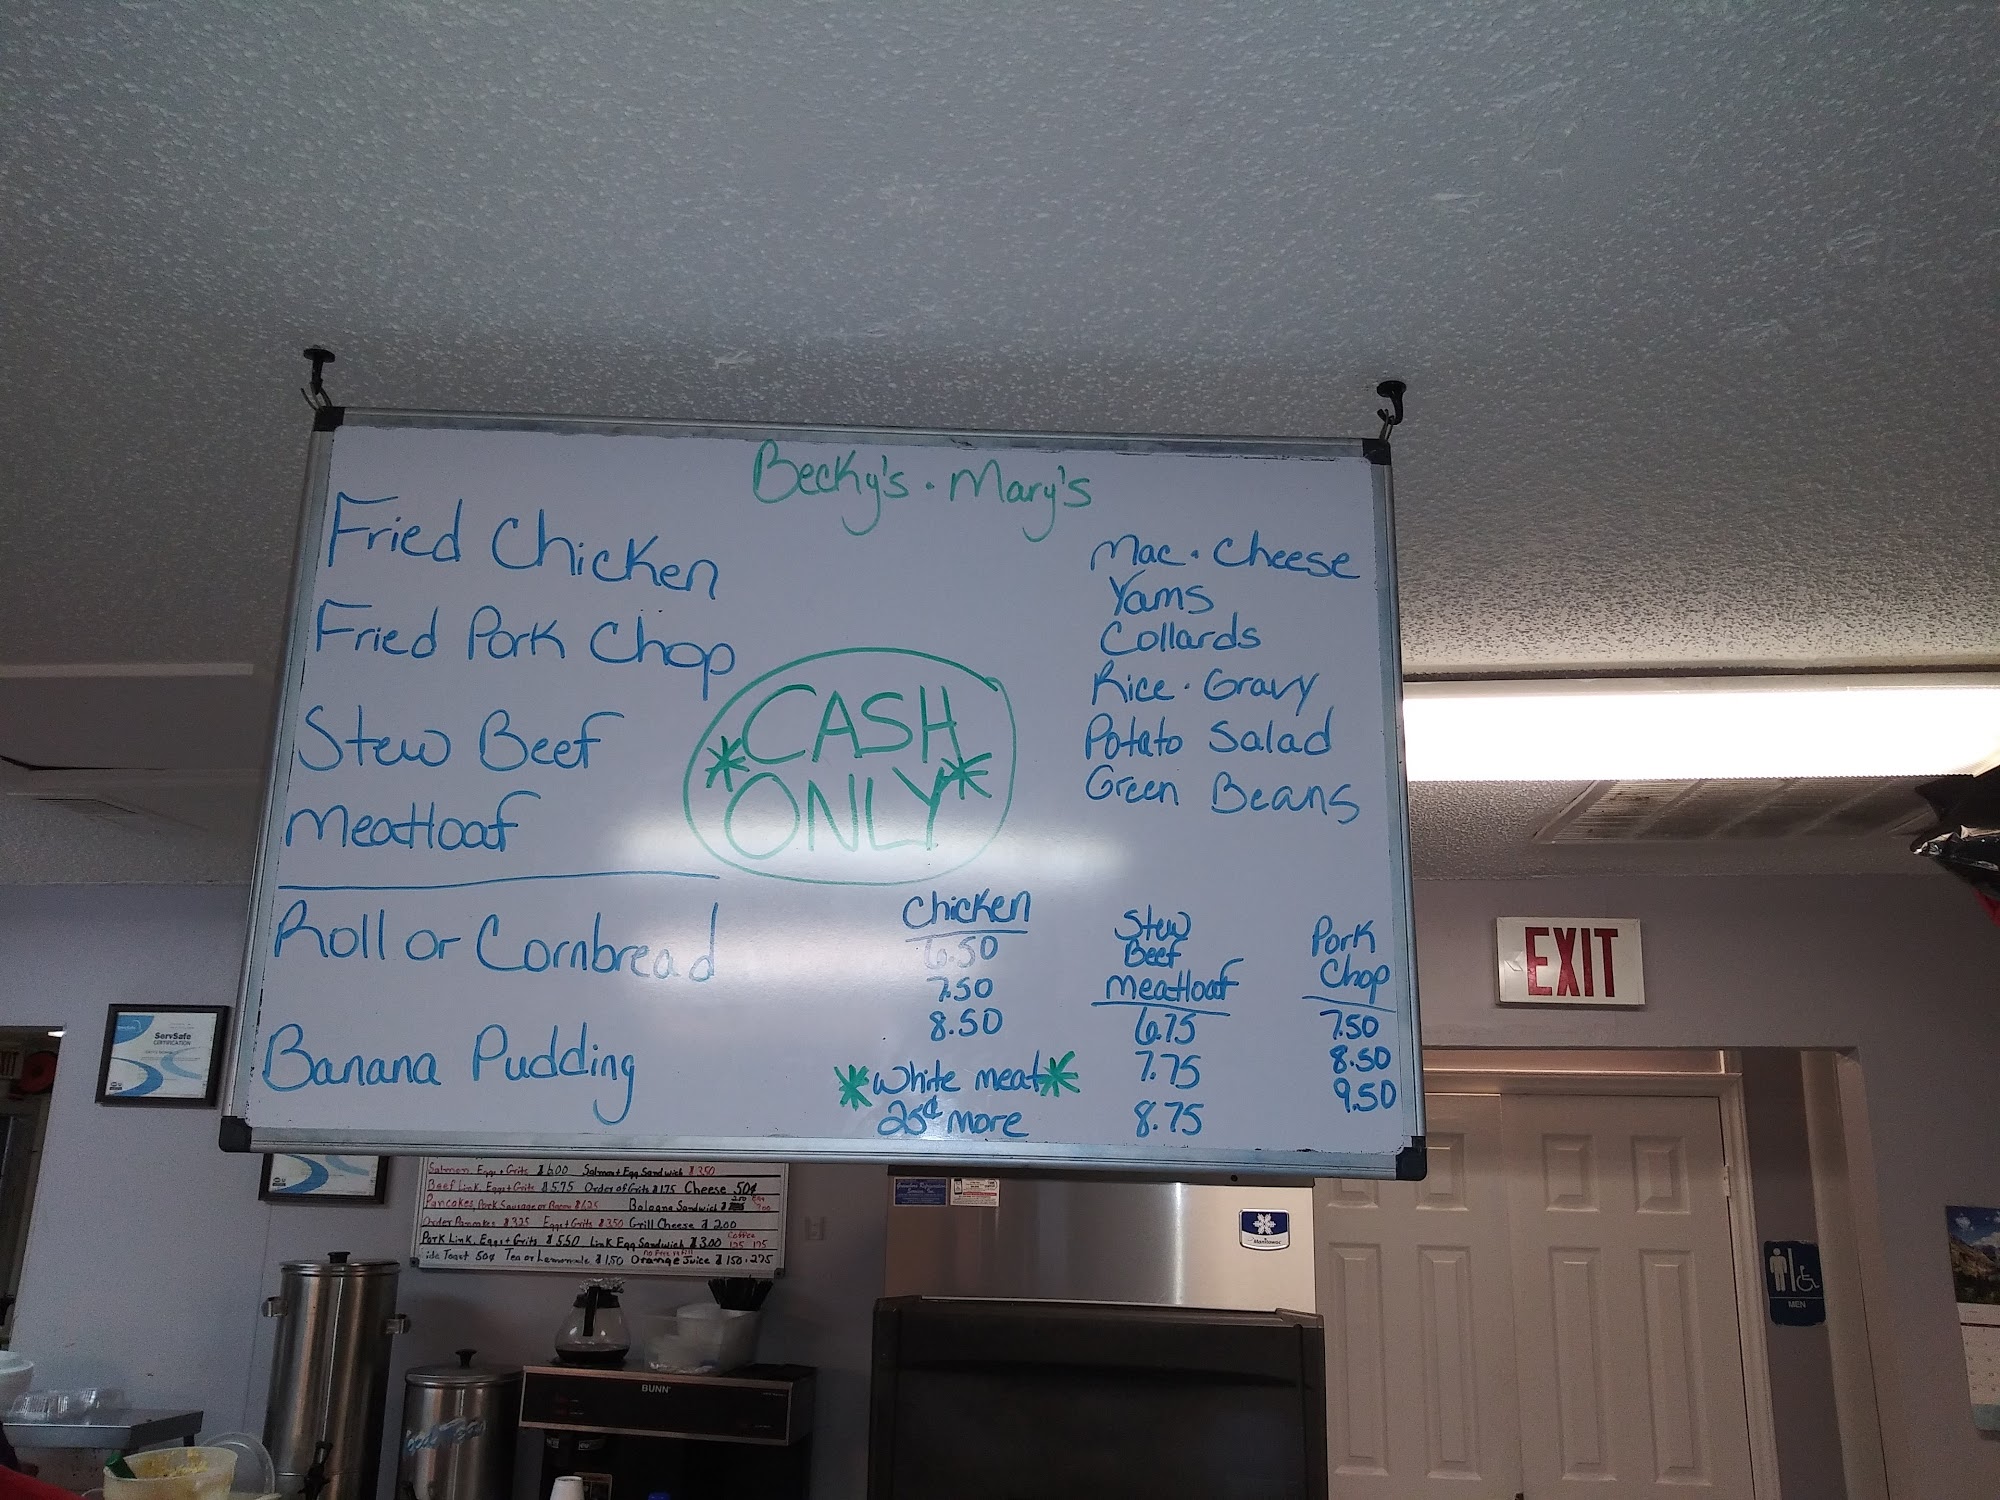 Becky's · Mary's
Fried Chicken
Fried Pork Chop
Stew Beef
Meatloaf
Roll or Cornbread
Banana Pudding
*CASH
ONLY*
Mac · Cheese
Yams
Collards
Rice · Gravy
Potato Salad
Green Beans
Chicken
6.50
7.50
8.50
*White meat*
25¢ more
Stew
Beef
Meatloaf
6.75
7.75
8.75
Pork
Chop
7.50
8.50
9.50
EXIT
ServSafe
CERTIFICATION
Salmon, Eggs + Grits $6.00 Salmon + Egg Sandwich $3.50
Beef Link, Eggs + Grits $5.75 Order of Grits $1.75 Cheese 50¢
Pancakes, Pork Sausage or Bacon $6.25 Bologna Sandwich
Order Pancakes $3.25 Eggs + Grits $3.50 Grill Cheese $2.00
Pork Link, Eggs + Grits $5.50 Link Egg Sandwich $3.00 Coffee
Toast 50¢ Tea or Lemonade $1.50 Orange Juice $1.50 · 2.75
Manitowoc
BUNN
MEN